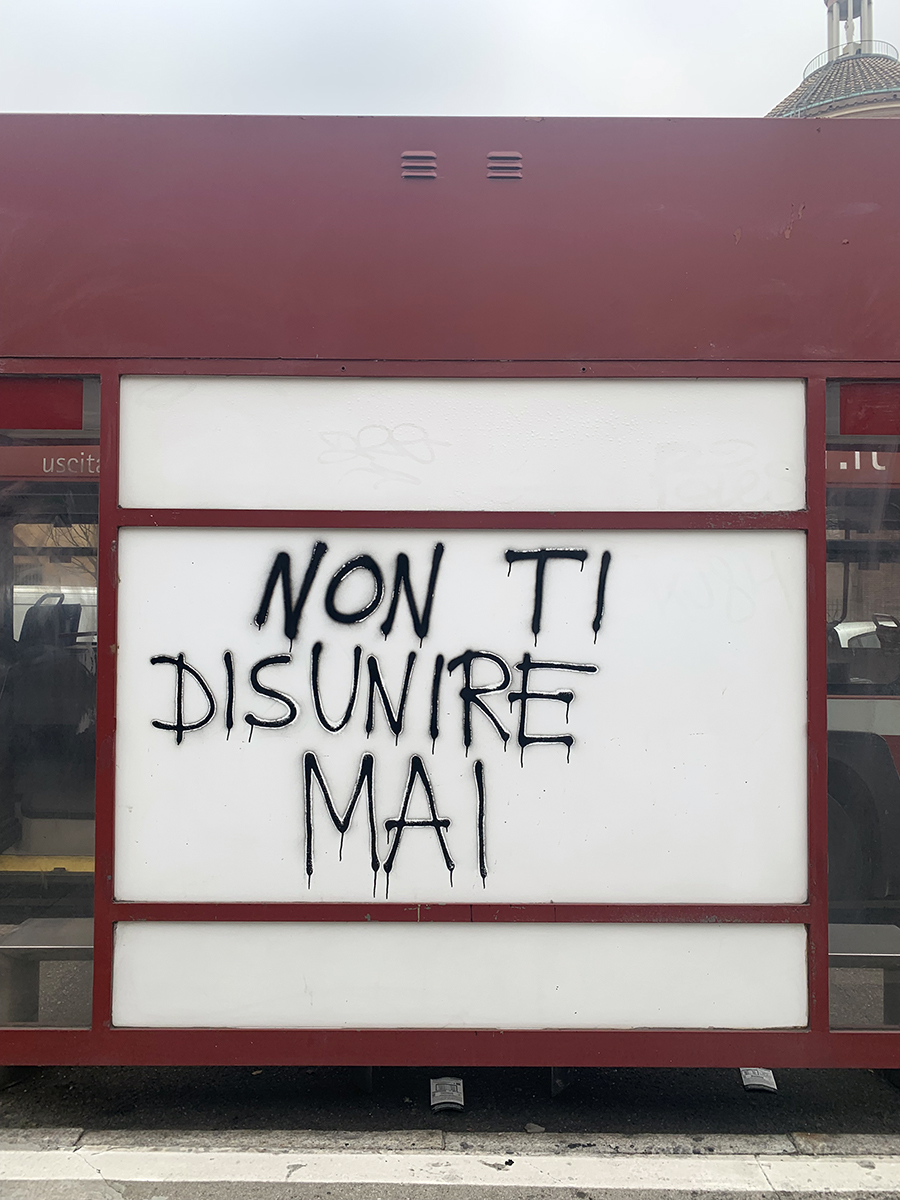 uscita
NON TI
DISUNIRE
MAI